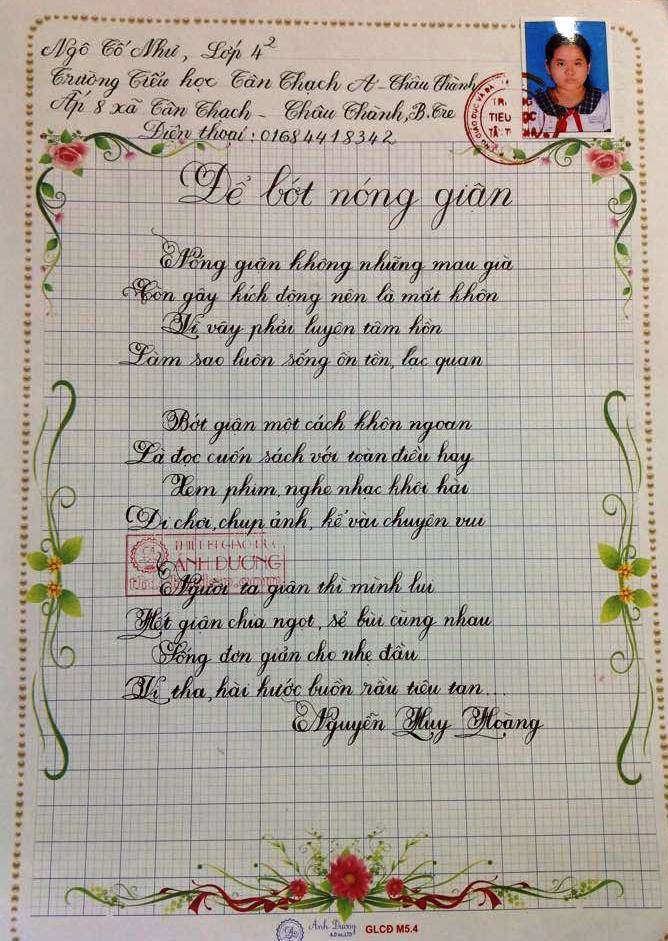 Ngô Tố Như, Lớp 4²
Trường Tiểu học Tân Thạch A - Châu Thành
Ấp 8 xã Tân Thạch - Châu Thành, B.Tre
Điện thoại: 01684418342
TIỂU HỌC
Để bớt nóng giận
Nóng giận không những mau già
Còn gây kích động nên là mất khôn
Vì vậy phải luyện tâm hồn
Làm sao luôn sống ôn tồn, lạc quan
Bớt giận một cách khôn ngoan
Là đọc cuốn sách với toàn điều hay
Xem phim, nghe nhạc khôi hài
Đi chơi, chụp ảnh, kể vài chuyện vui
THIẾT BỊ GIÁO DỤC
ÁNH DƯƠNG
Người ta giận thì mình lui
Hết giận chia ngọt, sẻ bùi cùng nhau
Sống đơn giản cho nhẹ đầu
Vị tha, hài hước buồn rầu tiêu tan...
Nguyễn Huy Hoàng
Ánh Dương
GLCĐ M5.4